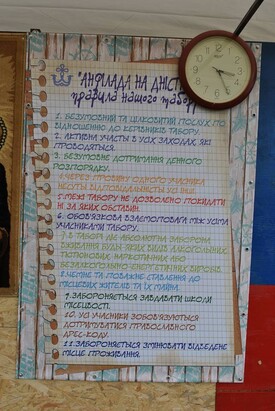 "АНФІЛАДА НА ДНІСТ
правила нашого табору
1. БЕЗУМОВНИЙ ТА ЦІЛКОВИТИЙ ПОСЛУХ ПО
ВІДНОШЕННЮ ДО КЕРІВНИКІВ ТАБОРУ.
2. АКТИВНА УЧАСТЬ В УСІХ ЗАХОДАХ, ЯКІ
ПРОВОДЯТЬСЯ.
3. БЕЗУМОВНЕ ДОТРИМАННЯ ДЕННОГО
РОЗПОРЯДКУ.
4. ЧЕРЕЗ ПРОВИНУ ОДНОГО УЧАСНИКА
НЕСУТЬ ВІДПОВІДАЛЬНІСТЬ УСІ
5. МЕЖІ ТАБОРУ НЕ ДОЗВОЛЕНО ПОКИДАТИ
НІ ЗА ЯКИХ ОБСТАВИН
6. ОБОВ'ЯЗКОВА ВЗАЄМОПОВАГА МІЖ УСІМА
УЧАСНИКАМИ ТАБОРУ.
7. В ТАБОРІ ДІЄ АБСОЛЮТНА ЗАБОРОНА
ВЖИВАННЯ БУДЬ ЯКИХ ВИДІВ АЛКОГОЛЬНИХ
ТЮТЮНОВИХ, НАРКОТИЧНИХ АБО
БЕЗАЛКОГОЛЬНО-ЕНЕРГЕТИЧНИХ ВИРОБІВ.
8. ЧЕМНЕ ТА ПОВАЖНЕ СТАВЛЕННЯ ДО
МІСЦЕВИХ ЖИТЕЛІВ ТА ЇХ МАЙНА.
9. ЗАБОРОНЯЄТЬСЯ ЗАВДАВАТИ ШКОДИ
МІСЦЕВОСТІ.
10. УСІ УЧАСНИКИ ЗОБОВ'ЯЗУЮТЬСЯ
ДОТРИМУВАТИСЯ ПРАВОСЛАВНОГО
ДРЕС-КОДУ.
11. ЗАБОРОНЯЄТЬСЯ ЗМІНЮВАТИ ВІДВЕДЕНЕ
МІСЦЕ ПРОЖИВАННЯ.